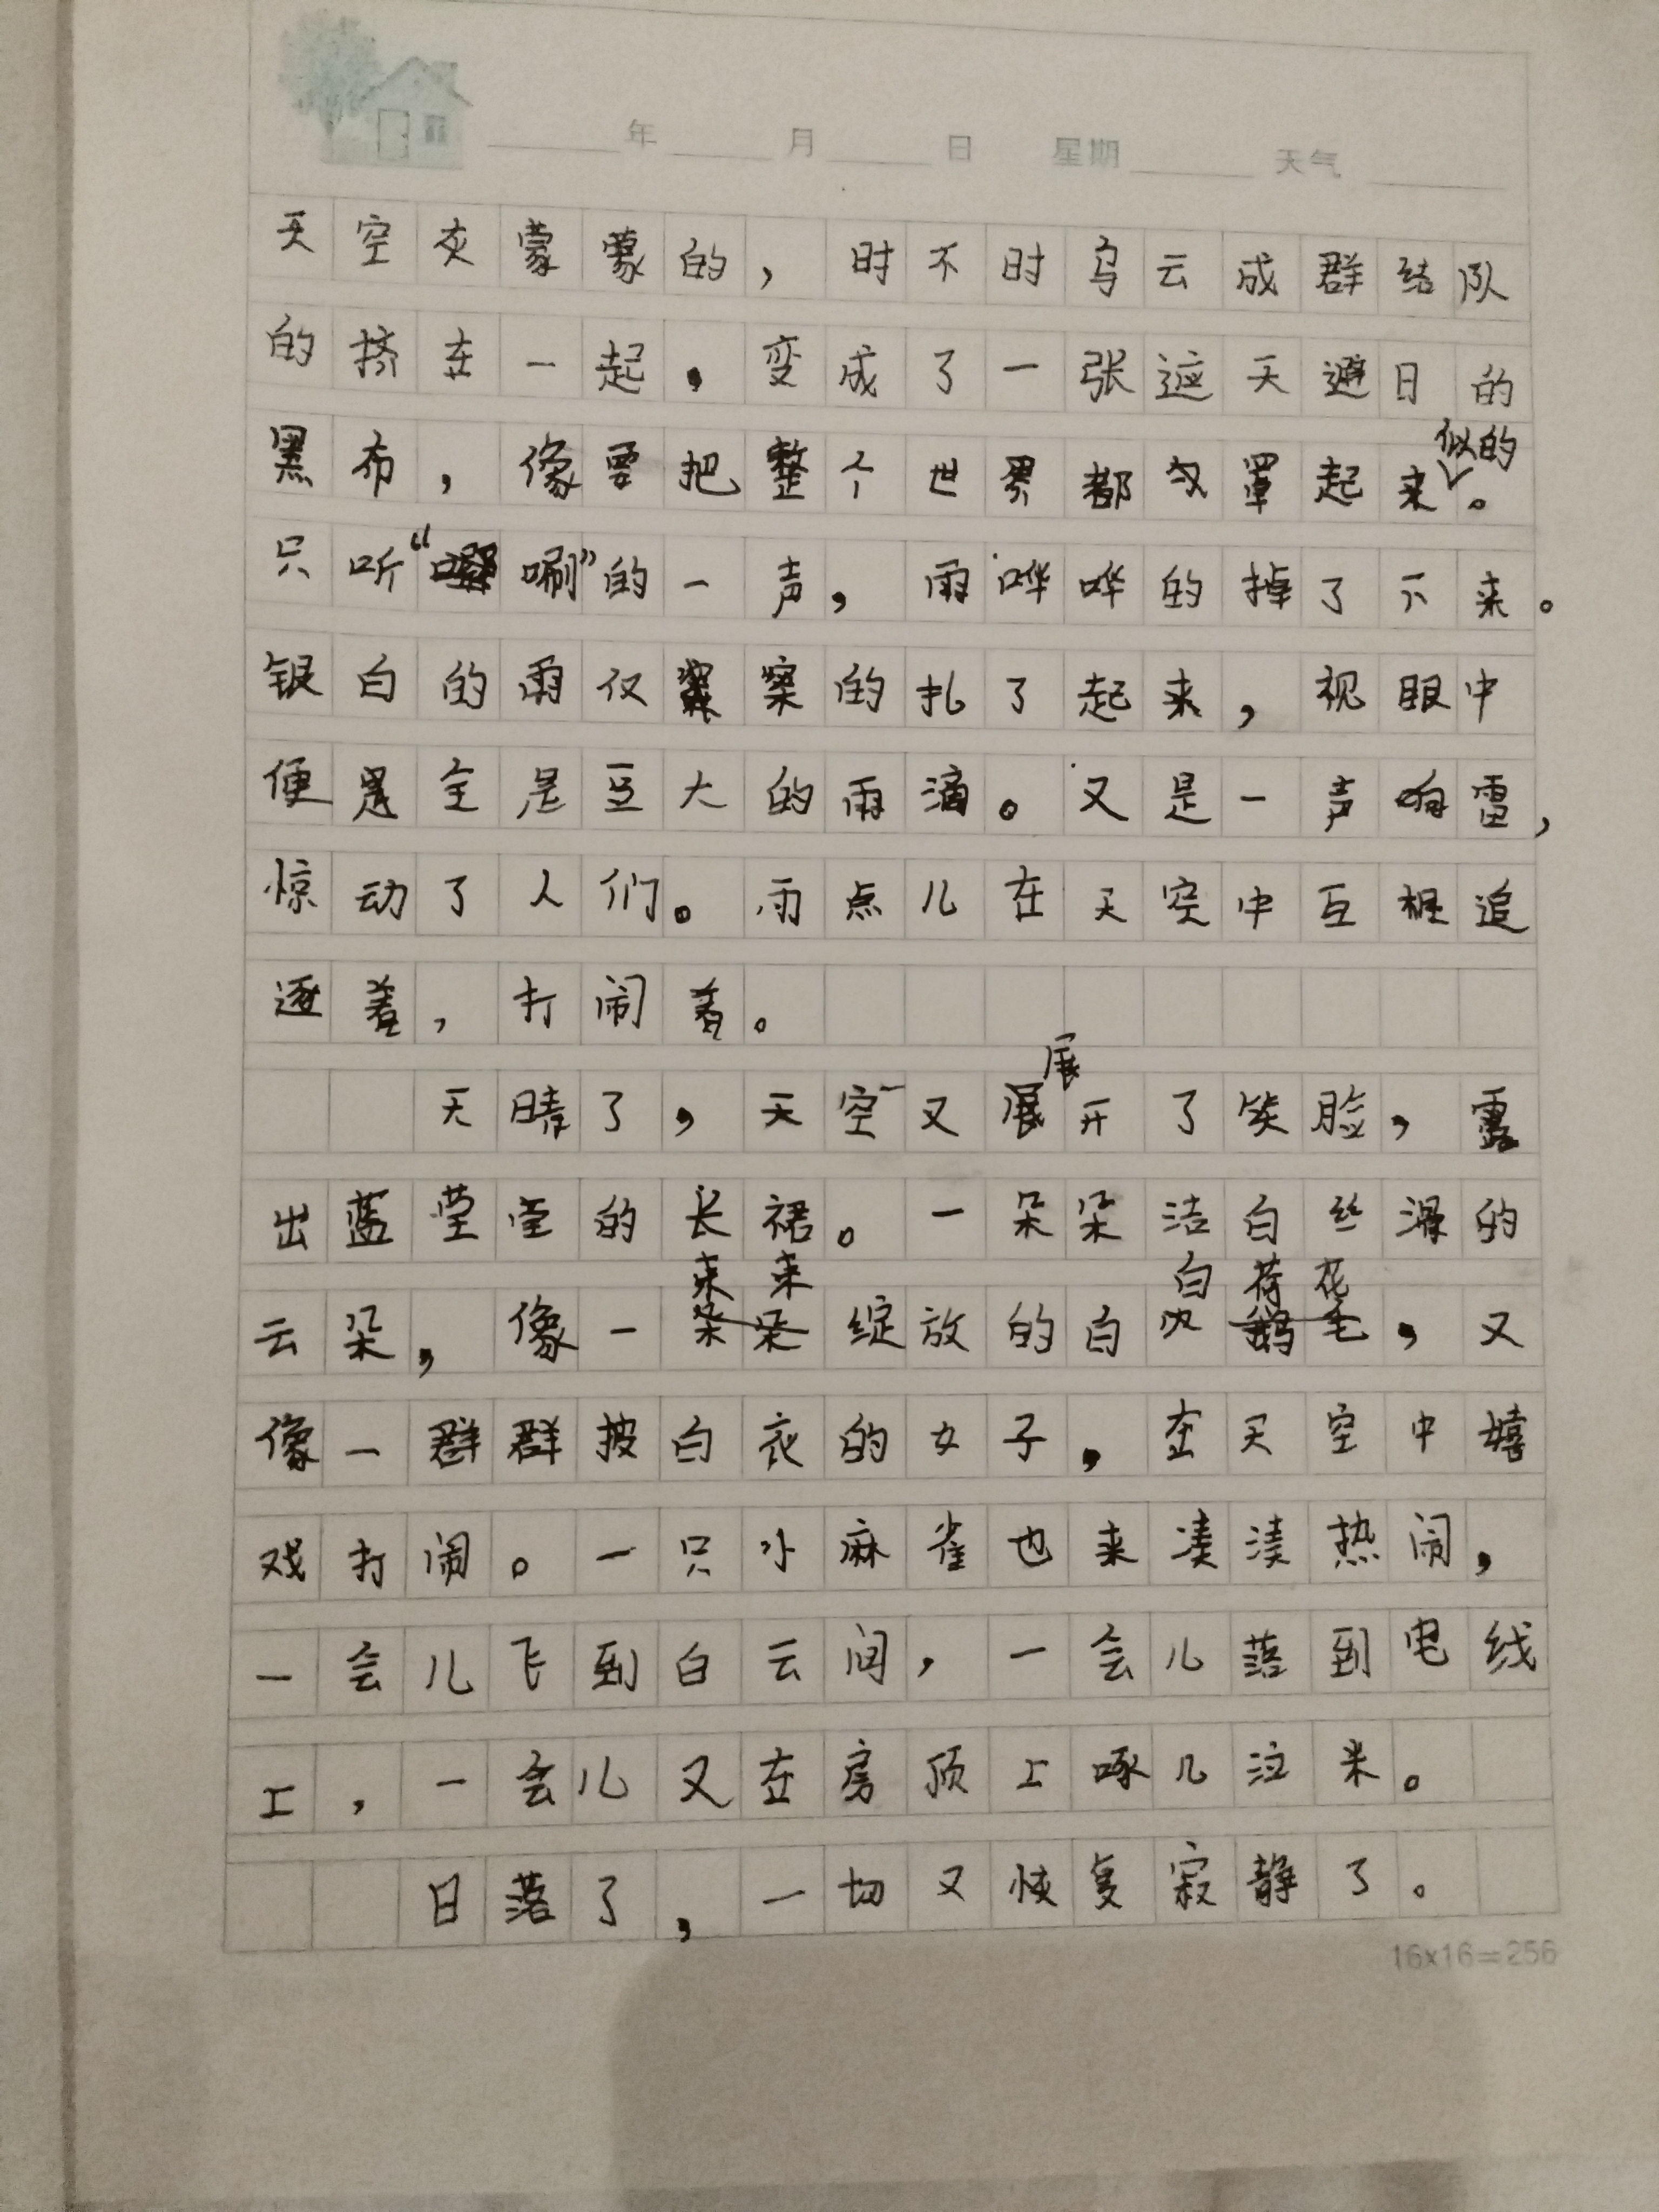 年 月 日 星期 天气
天空灰蒙蒙的，时不时乌云成群结队
的挤在一起，变成了一张遮天避日的
黑布，像要把整个世界都勾罩起来似的。
只听“唰”的一声，雨哗哗的掉了下来。
银白的雨仅的扎了起来，视眼中
便是全是豆大的雨滴。又是一声响雷，
惊动了人们。雨点儿在天空中互相追
逐着，打闹着。
天晴了，天空又展开了笑脸，露
出蓝莹莹的长裙。一朵朵洁白丝滑的
云朵，像一束束绽放的白荷花，又
像一群群披白衣的女子，在天空中嬉
戏打闹。一只小麻雀也来凑凑热闹，
一会儿飞到白云间，一会儿落到电线
上，一会儿又在房顶上啄几泣米。
日落了，一切又恢复寂静了。
16x16=256